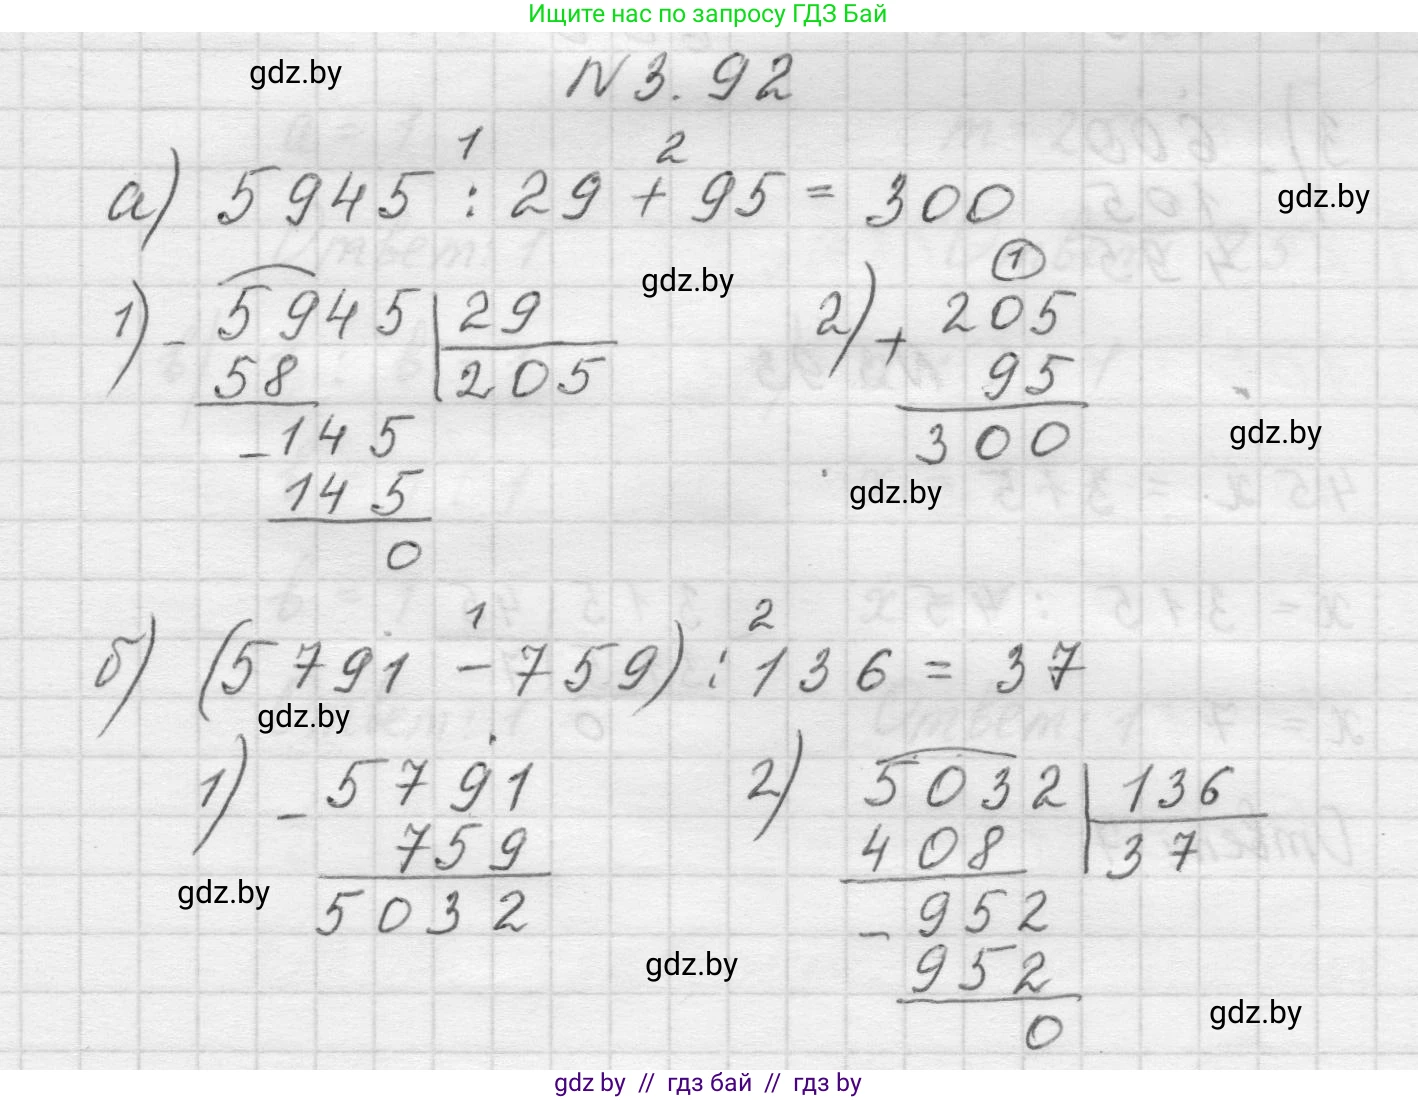 Ищите нас по запросу ГДЗ Бай
gdz.by
N 3.92
1 2
а) 5945 : 29 + 95 = 300
gdz.by
gdz.by
1) - 5945 | 29
58 205
-145
145
0
1
2) + 205
95
300
gdz.by
gdz.by
1 2
б) (5791 - 759) : 136 = 37
gdz.by
1) - 5791
759
5032
gdz.by
2) 5032 | 136
408 37
- 952
952
0
gdz.by
gdz.by
gdz by // гдз бай // гдз by